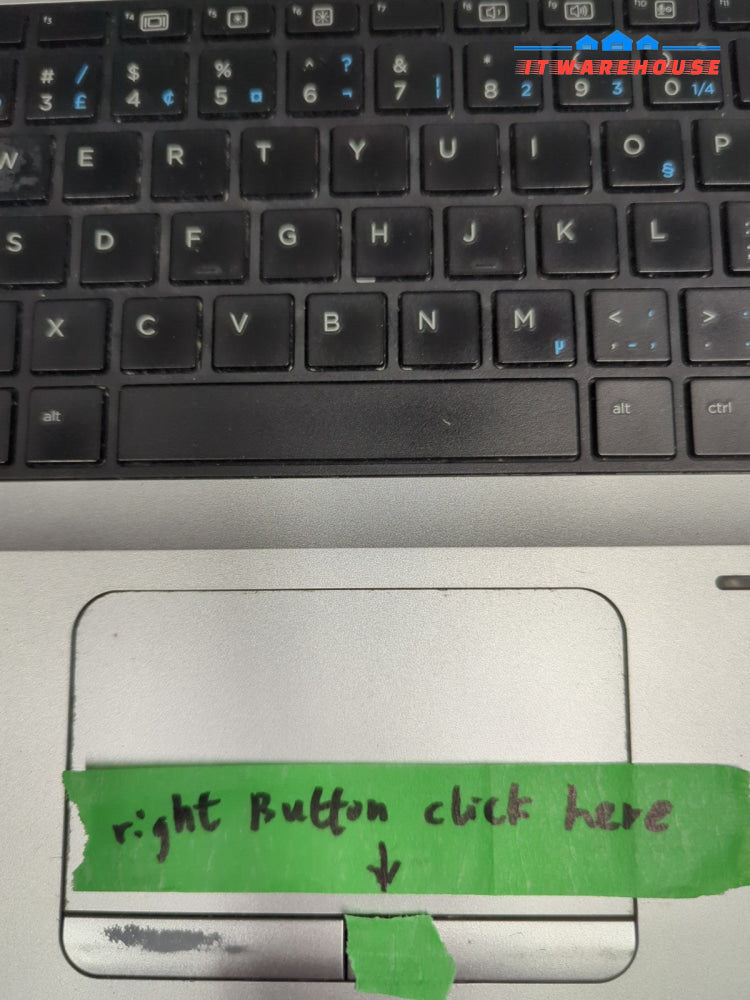 f3 f4 f5 f6 f7 f8 f9 f10 f11
ITWAREHOUSE
# / $ % ^ ? & *
3 £ 4 ¢ 5 ¤ 6 ¬ 7 | 8 2 9 3 0 1/4
W E R T Y U I O § P
S D F G H J K L
X C V B N M µ < >
alt alt ctrl
right Button click here
↓